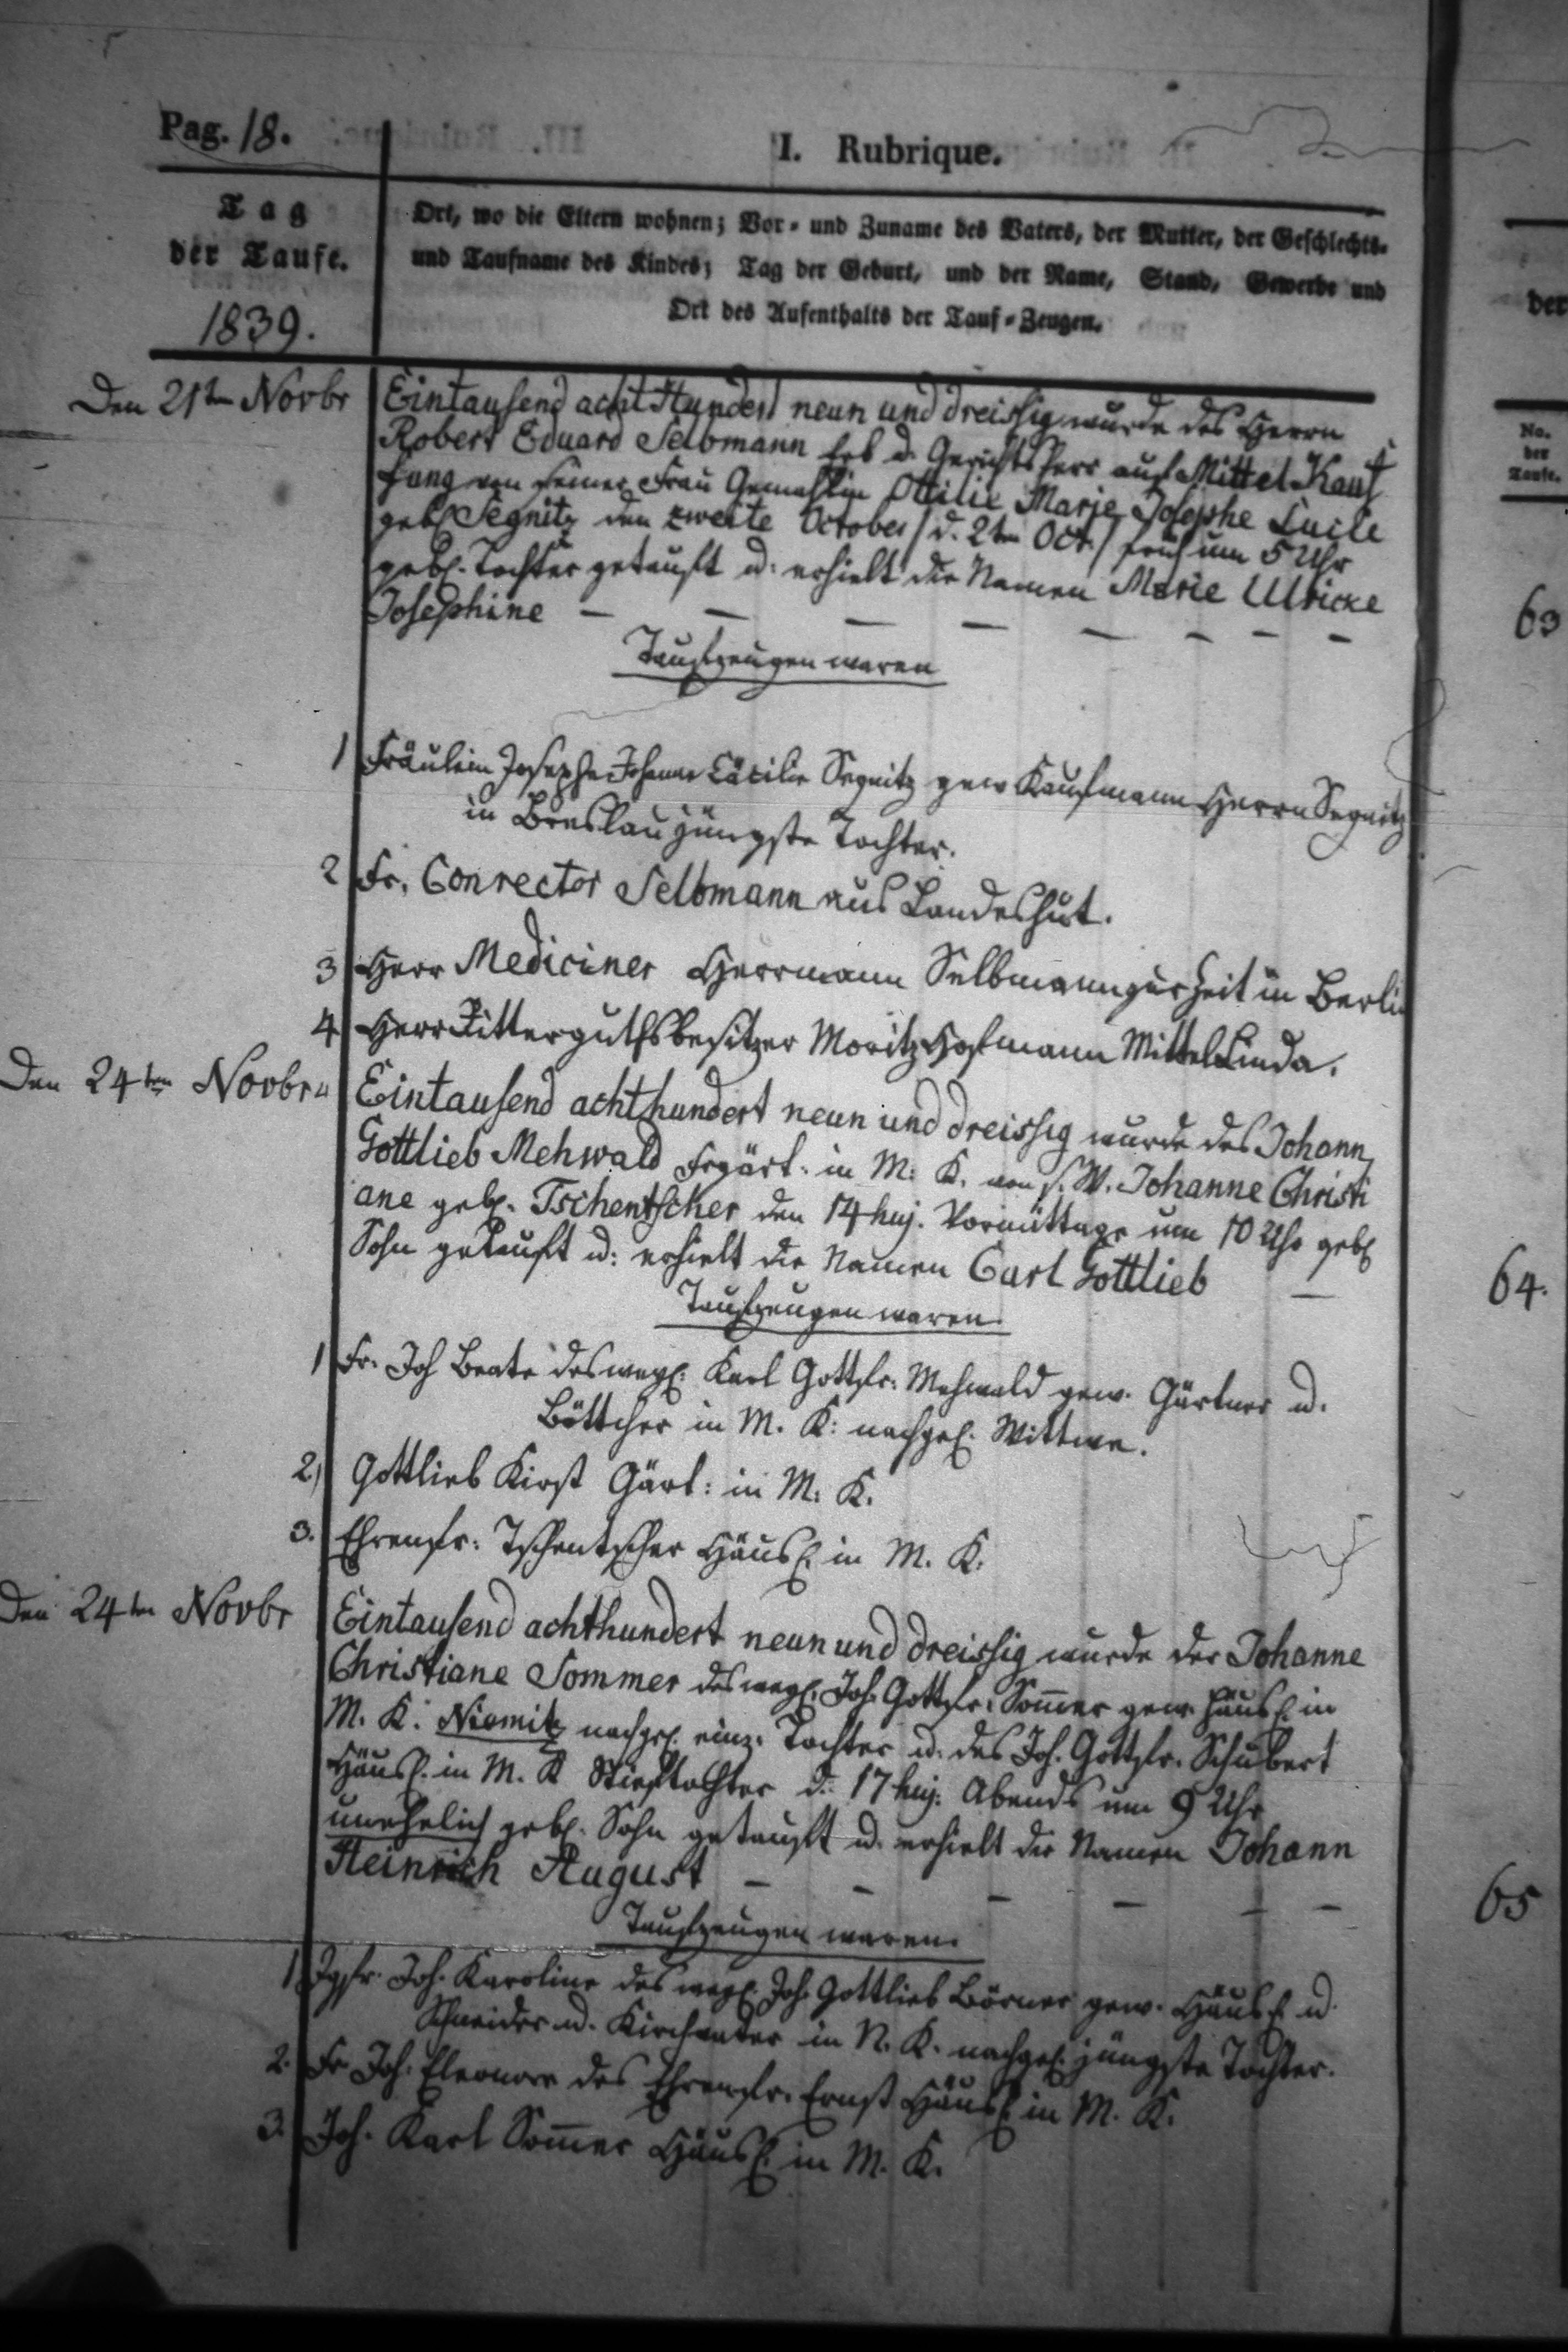 Pag. 18.
I. Rubrique.
Tag
der Taufe.
1839.
Ort, wo die Eltern wohnen; Vor- und Zuname des Vaters, der Mutter, der Geschlechts-
und Taufname des Kindes; Tag der Geburt, und der Name, Stand, Gewerbe und
Ort des Aufenthalts der Tauf-Zeugen.
Den 21ten Novbr
Eintausend acht Hundert neun und dreissig wurde des Herrn
Robert Eduard Selbmann Erb u. Gerichtsherr auf Mittel Kauf
fung von seiner Frau Gemahlin Ottilie Marie Josephe Lucile
geb. Segnitz den zweite October / d. 2ten Oct. / früh um 5 Uhr
geb. Tochter getauft u. erhielt die Namen Marie Ulricke
Josephine — — — — — — — —
Taufzeugen waren
1 Fräulein Josephe Johanne Cäcilie Segnitz gew Kaufmann Herrn Segnitz
in Breslau jüngste Tochter.
2 Fr. Conrector Selbmann aus Landeshut.
3 Herr Mediciner Herrmann Selbmann zur Zeit in Berlin
4 Herr Ritterguthsbesitzer Moritz Hofmann Mittel Linda.
Den 24ten Novbr
Eintausend achthundert neun und dreissig wurde des Johann
Gottlieb Mehwald Frgärt. in M. K. von s. W. Johanne Christi
ane geb. Tschentscher den 14 huj. Vormittage um 10 Uhr geb
Sohn getauft u. erhielt die Namen Carl Gottlieb —
Taufzeugen waren
1 Fr. Joh Beate des weyl. Karl Gottfr. Mehwald gew. Gärtner u.
Böttcher in M. K. nachgel. Wittwe.
2) Gottlieb Kirst Gärt: in M. K.
3. Ehrenfr: Tschentscher Häusl. in M. K.
Den 24ten Novbr
Eintausend achthundert neun und dreissig wurde der Johanne
Christiane Sommer des weyl. Joh. Gottfr. Som̄er gew. Häusl. in
M. K. nachgel. einz. Tochter u. des Joh. Gottfr. Schubert
Häusl. in M. K Stieftochter d. 17 huj. Abends um 9 Uhr
unehelich geb. Sohn getauft u. erhielt die Namen Johann
Heinrich August — — — — — —
Taufzeugen waren
1 Jgfr. Joh. Karoline des weyl. Joh. Gottlieb Börner gew. Häusl. u.
Schneider u. Kirchvater in N. K. nachgel. jüngste Tochter.
2. Fr Joh. Eleonore des Ehrenfr. Ernst Häusl. in M. K.
3. Joh. Karl Som̄er Häusl. in M. K.
der
No.
der
Taufe.
63
64.
65